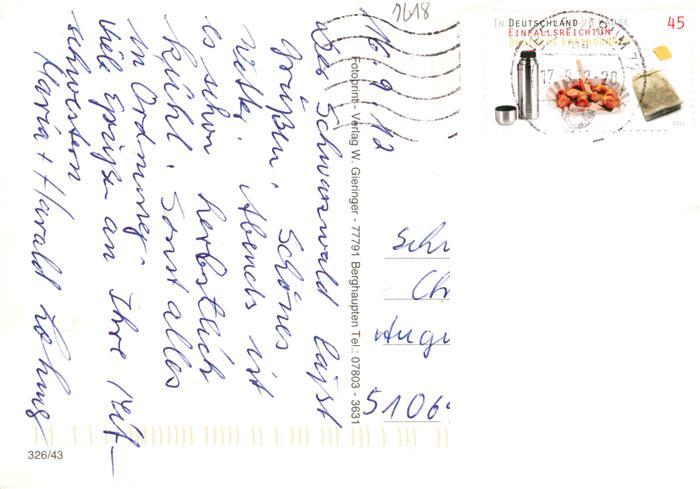 7618
16.9.12
Der Schwarzwald läßt
grüßen. Schönes
Wetter. Abends ist
es schon herbstlich
kühl. Sonst alles
in Ordnung.
Viele Grüße an Ihre Mit-
schwestern
Maria + Harald
Fotoprint - Verlag W. Gieringer - 77791 Berghaupten Tel.: 07803 - 3631
IN DEUTSCHLAND ZU HAUSE
EINFALLSREICHTUM
DEUTSCHE ERFINDUNGEN
45
17.9.12-20
2011
Schw
Chr
Augu
5106
326/43